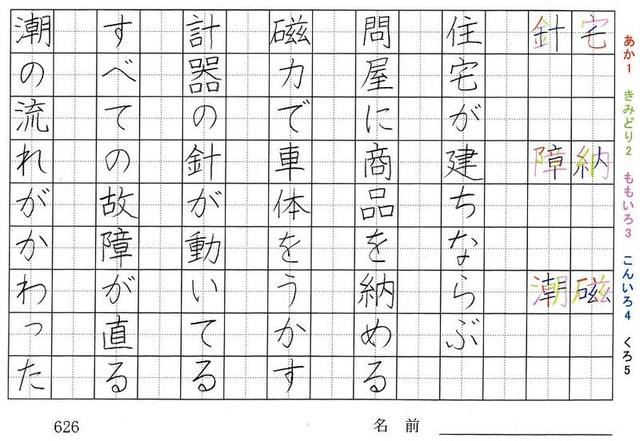 あか1 きみどり2 ももいろ3 こんいろ4 くろ5
宅 納 磁
針 障 潮
住宅が建ちならぶ
問屋に商品を納める
磁力で車体をうかす
計器の針が動いてる
すべての故障が直る
潮の流れがかわった
626
名前